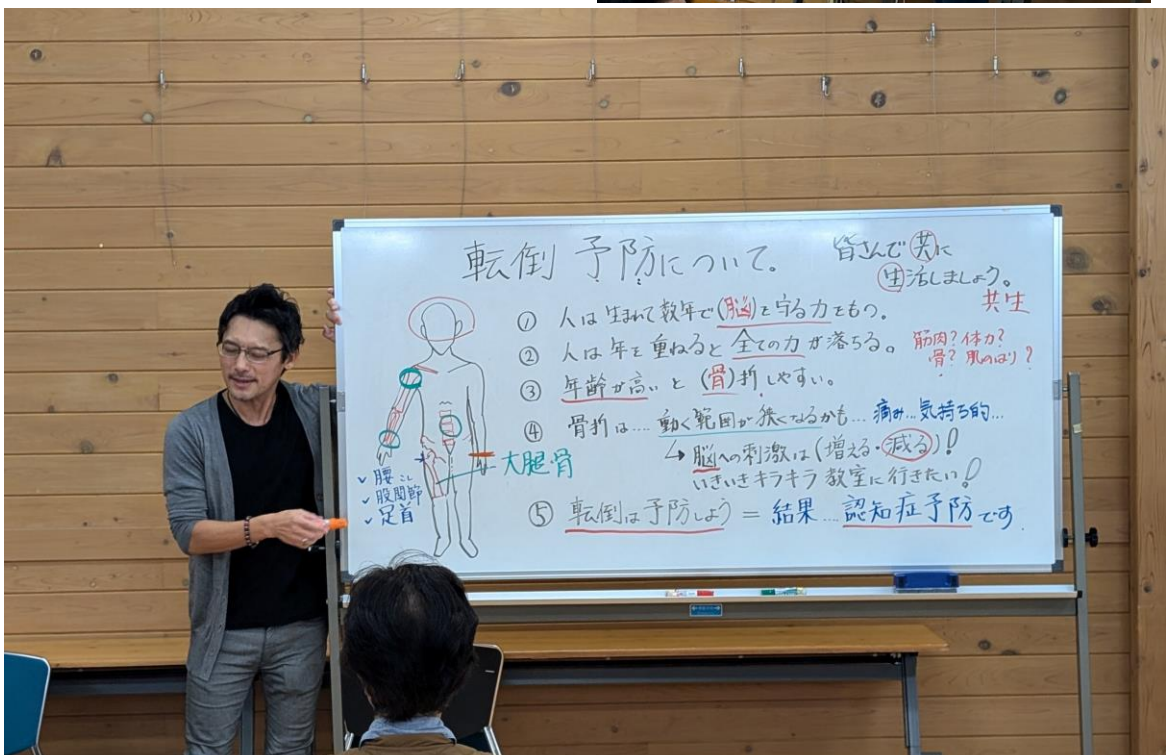 転倒予防について。
皆さんで共に
生活しましょう。
共生
① 人は生まれて数年で(脳)を守る力をもつ。
② 人は年を重ねると全ての力が落ちる。
筋肉?体力?
骨?肌のはり?
③ 年齢が高いと(骨)折しやすい。
④ 骨折は…動く範囲が狭くなるかも…痛み…気持ち的…
↳脳への刺激は(増える・減る)!
いきいきキラキラ教室に行きたい!
⑤ 転倒は予防しよう=結果…認知症予防です.
大腿骨
✓腰こし
✓股関節
✓足首